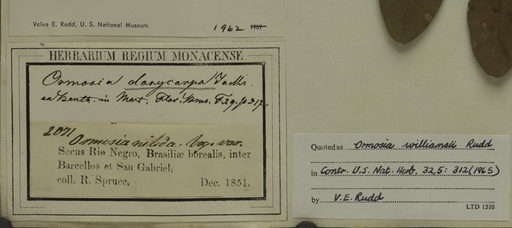 Velva E. Rudd, U. S. National Museum
1962
HERBARIUM REGIUM MONACENSE
Ormosia dasycarpa Jacks.
in Mart. Flor. Bras.
2071
Ormosia nitida. Vog. var.
Secus Rio Negro, Brasiliæ borealis, inter
Barcellos et San Gabriel,
coll. R. Spruce, Dec. 1851.
Quoted as Ormosia williamsii Rudd
in Contr. U.S. Nat. Herb. 32,5: 312 (1965)
by V.E. Rudd
LTD 1510